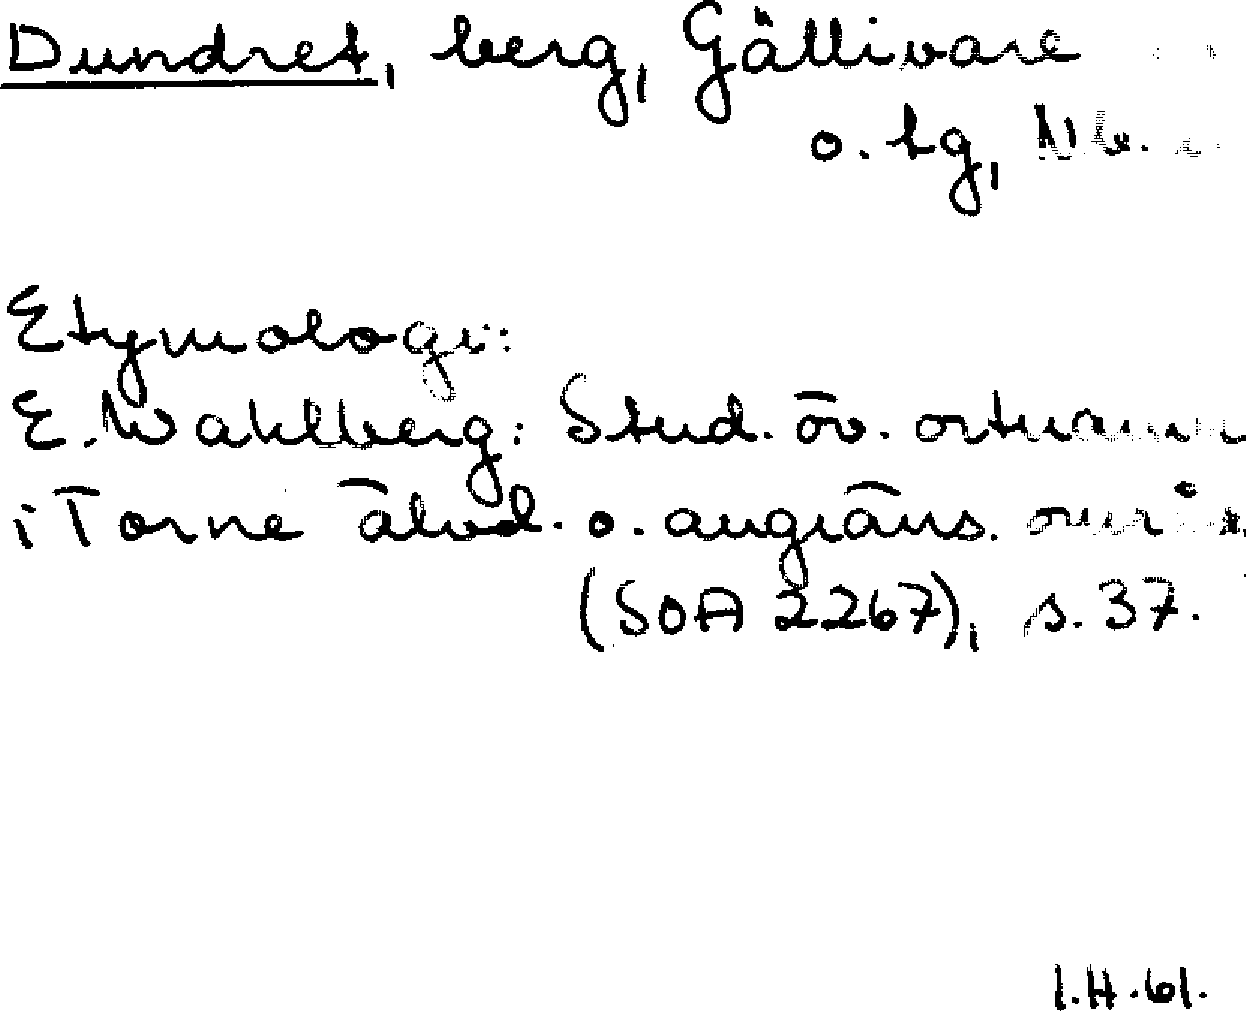 Dundret, berg, Gällivare
o. tg, Nb.
Etymologi:
E. Wahlberg: Stud. öv. ortnamn
i Torne älvd. o. angräns.
(SOA 2267), s. 37.
I.H.61.